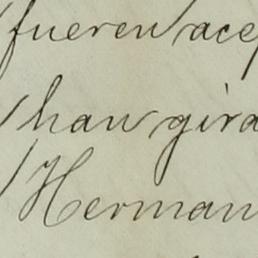 fueren ace
han gira
Herman